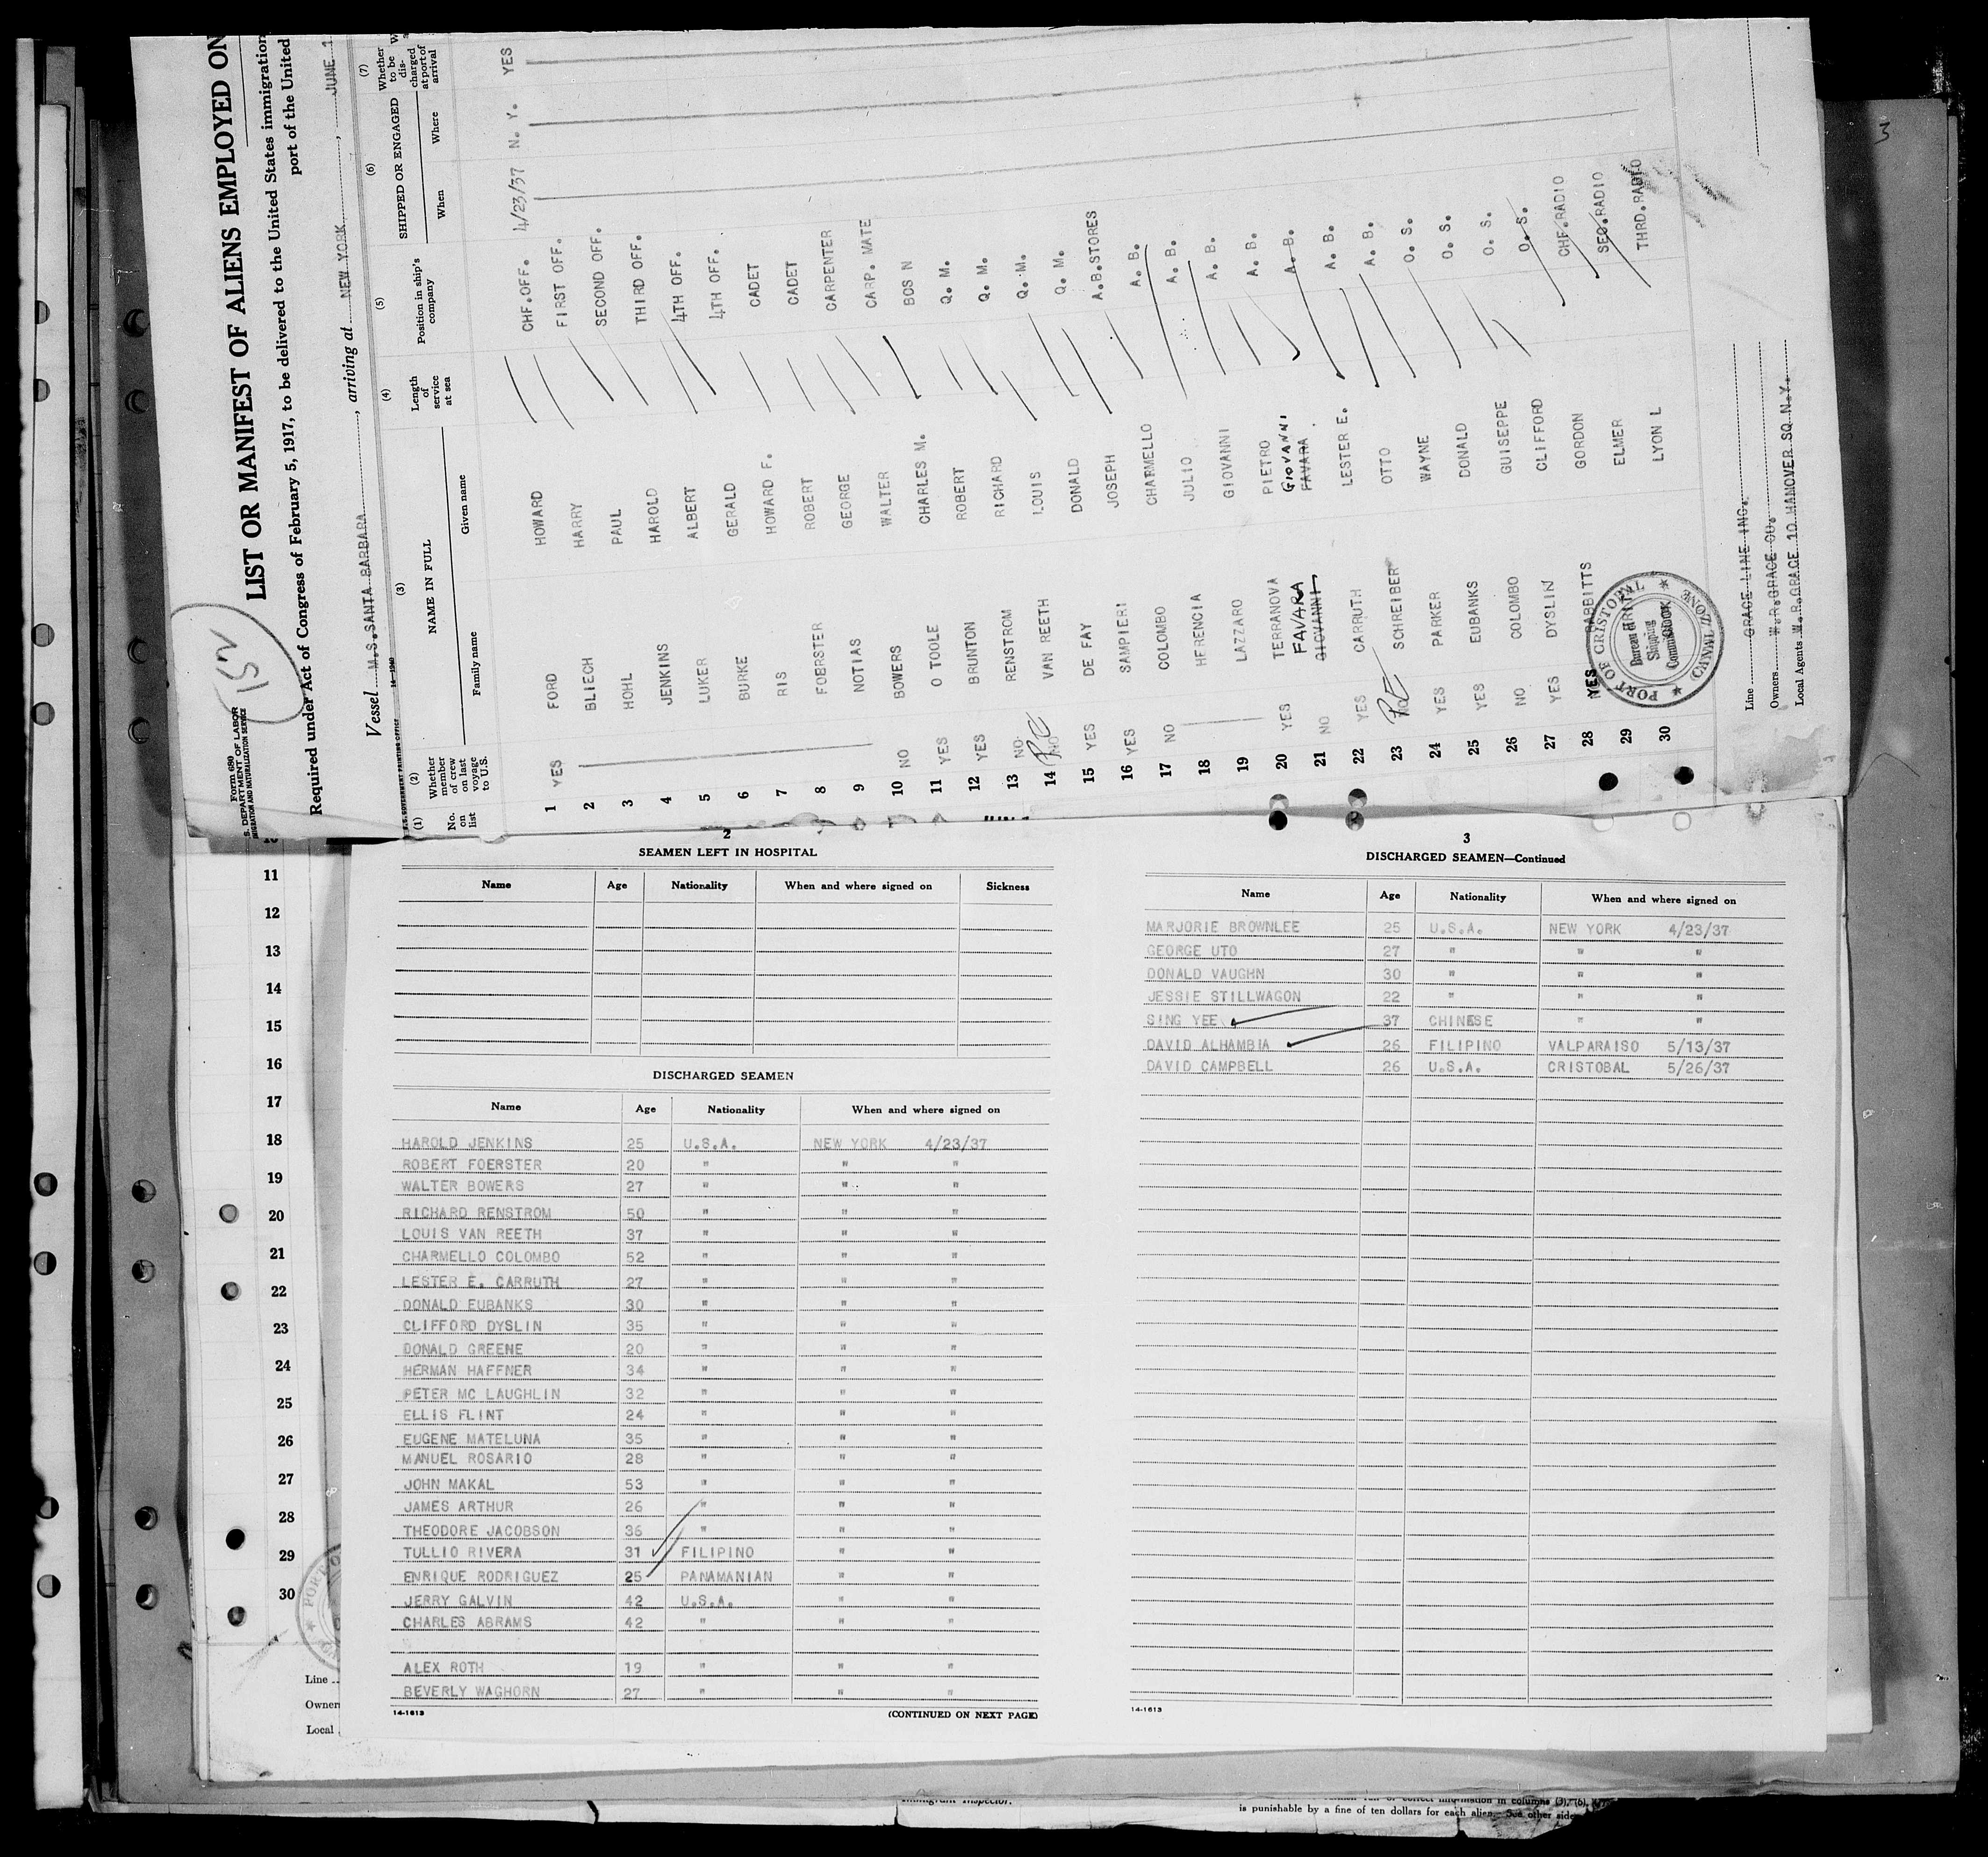 Form 680
S. DEPARTMENT OF LABOR
MIGRATION AND NATURALIZATION SERVICE
LIST OR MANIFEST OF ALIENS EMPLOYED ON
Required under Act of Congress of February 5, 1917, to be delivered to the United States immigration
port of the United
Vessel M.S.SANTA BARBARA, arriving at NEW YORK, JUNE 1
(1) (2) (3) (4) (5) (6) (7)
No. on list
Whether member of crew on last voyage to U.S.
NAME IN FULL
Family name Given name
Length of service at sea
Position in ship's company
SHIPPED OR ENGAGED
When Where
Whether to be discharged at port of arrival
1 YES FORD HOWARD CHF.OFF. 4/23/37 N. Y. YES
2 BLIECH HARRY FIRST OFF.
3 HOHL PAUL SECOND OFF.
4 JENKINS HAROLD THIRD OFF.
5 LUKER ALBERT 4TH OFF.
6 BURKE GERALD 4TH OFF.
7 RIS HOWARD F. CADET
8 FOERSTER ROBERT CADET
9 NOTIAS GEORGE CARPENTER
10 NO BOWERS WALTER CARP. MATE
11 YES O TOOLE CHARLES M. BOS N
12 YES BRUNTON ROBERT Q. M.
13 NO RENSTROM RICHARD Q. M.
14 NO VAN REETH LOUIS Q. M.
15 YES DE FAY DONALD Q. M.
16 YES SAMPIERI JOSEPH A.B.STORES
17 NO COLOMBO CHARMELLO A. B.
18 HERENCIA JULIO A. B.
19 LAZZARO GIOVANNI A. B.
20 YES TERRANOVA PIETRO A. B.
FAVARA GIOVANNI
21 NO GIOVANNI FAVARA A. B.
22 YES CARRUTH LESTER E. A. B.
23 NO SCHREIBER OTTO A. B.
24 YES PARKER WAYNE O. S.
25 YES EUBANKS DONALD O. S.
26 NO COLOMBO GUISEPPE O. S.
27 YES DYSLIN CLIFFORD O. S.
28 YES BABBITTS GORDON CHF.RADIO
29 ELMER SEC.RADIO
30 LYON L THRD.RADIO
PORT OF CRISTOBAL
CANAL ZONE
Shipping
Line GRACE LINE INC.
Owners W.R.GRACE CO.
Local Agents W.R.GRACE 10 HANOVER SQ N.Y.
3
11
12
13
14
15
16
17
18
19
20
21
22
23
24
25
26
27
28
29
30
Line
Owner
Local
2
SEAMEN LEFT IN HOSPITAL
Name Age Nationality When and where signed on Sickness
DISCHARGED SEAMEN
Name Age Nationality When and where signed on
HAROLD JENKINS 25 U.S.A. NEW YORK 4/23/37
ROBERT FOERSTER 20 " " "
WALTER BOWERS 27 " " "
RICHARD RENSTROM 50 " " "
LOUIS VAN REETH 37 " " "
CHARMELLO COLOMBO 52 " " "
LESTER E. CARRUTH 27 " " "
DONALD EUBANKS 30 " " "
CLIFFORD DYSLIN 35 " " "
DONALD GREENE 20 " " "
HERMAN HAFFNER 34 " " "
PETER MC LAUGHLIN 32 " " "
ELLIS FLINT 24 " " "
EUGENE MATELUNA 35 " " "
MANUEL ROSARIO 28 " " "
JOHN MAKAL 53 " " "
JAMES ARTHUR 26 " " "
THEODORE JACOBSON 36 " " "
TULLIO RIVERA 31 FILIPINO " "
ENRIQUE RODRIGUEZ 25 PANAMANIAN " "
JERRY GALVIN 42 U.S.A. " "
CHARLES ABRAMS 42 " " "
ALEX ROTH 19 " " "
BEVERLY WAGHORN 27 " " "
14-1613 (CONTINUED ON NEXT PAGE)
3
DISCHARGED SEAMEN—Continued
Name Age Nationality When and where signed on
MARJORIE BROWNLEE 25 U.S.A. NEW YORK 4/23/37
GEORGE UTO 27 " " "
DONALD VAUGHN 30 " " "
JESSIE STILLWAGON 22 " " "
SING YEE 37 CHINESE " "
DAVID ALHAMBIA 26 FILIPINO VALPARAISO 5/13/37
DAVID CAMPBELL 26 U.S.A. CRISTOBAL 5/26/37
14-1613
Immigrant Inspector.
information in columns (3), (6),
is punishable by a fine of ten dollars for each alien. See other side